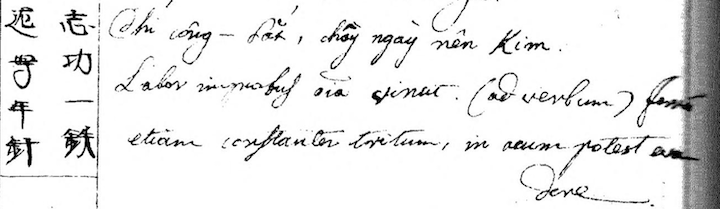 志功一鉄
迡年針
Chí công – sắt, chầy ngày nên Kim.
Labor improbus oīa vincit. (ad verbum) ferrū
etiam constanter tritum, in acum potest eva
dere